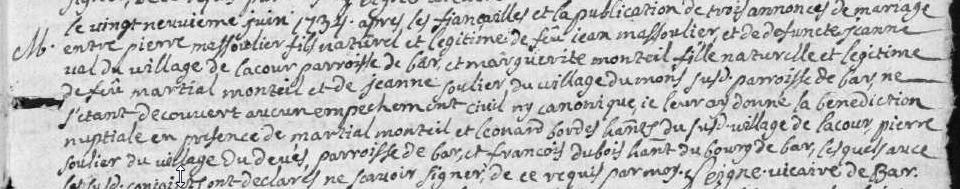 le vingt neuvieme juin 1734. apres les fiancailles et la publication de trois annonces de mariage
M. entre pierre massoulier fils naturel et legitime de feu jean massoulier, et de defuncte jeanne
val du village de lacour parroisse de bar, et marguerite monteil fille naturelle et legitime
de feu martial monteil et de jeanne soulier, du village du mons susd. parroisse de bar, ne
s'etant decouvert aucun empechement civil ny canonique, je leur ay donné la benediction
nuptiale en presence de martial monteil et leonard bordes hãnts du susd. village de lacour, pierre
soulier du village du deves, parroisse de bar, et francois dubois hant du bourg de bar, lesquels avec
les susd. conjoints ont declarés ne scavoir signer, de ce requis par moy. vicaire de Bar.